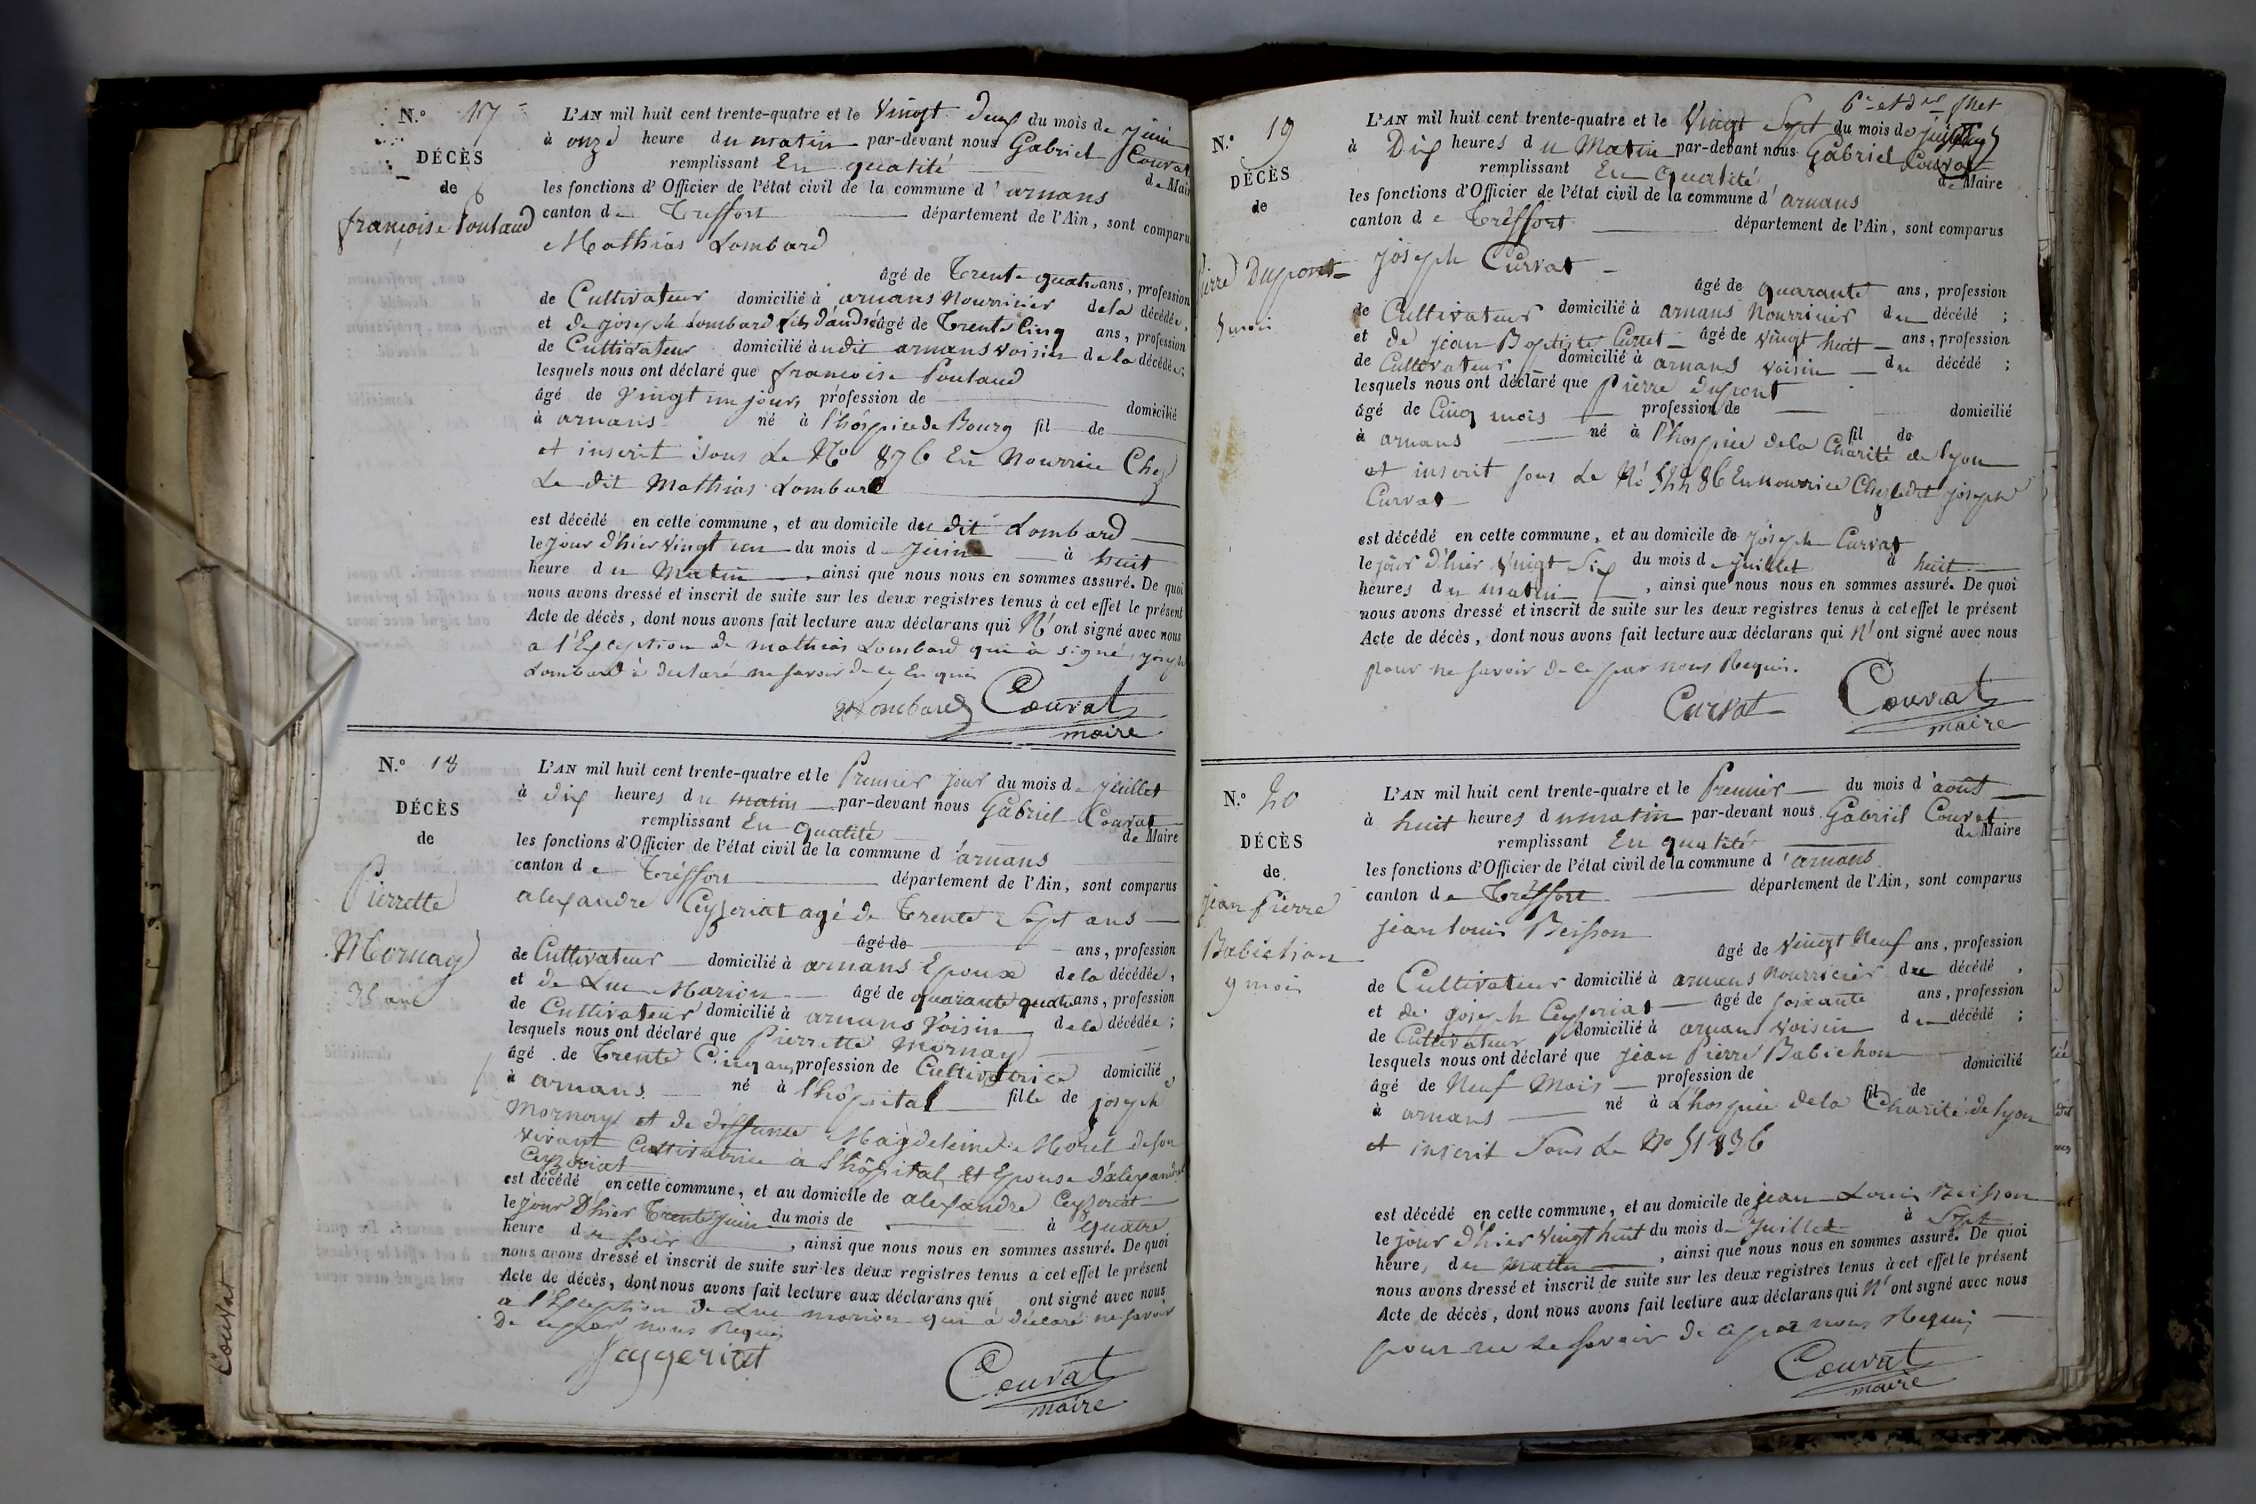 N.° 17
DÉCÈS
de
françoise Poulaud
L'AN mil huit cent trente-quatre et le Vingt Deux du mois de juin
à onze heure du matin par-devant nous Gabriel Couvat
remplissant En qualité de Maire
les fonctions d'Officier de l'état civil de la commune d'arnans
canton de Treffort département de l'Ain, sont comparu
Mathias Lombard
âgé de Trente quatre ans, profession
de Cultivateur domicilié à arnans Nourricier de la décédée,
et de joseph Lombard fils d'andré âgé de Trente Cinq ans, profession
de Cultivateur domicilié audit arnans voisin de la décédée;
lesquels nous ont déclaré que françoise Poulaud
âgé de Vingt un jours profession de domicilié
à arnans né à l'hospice de Bourg fil de
et inscrit sous Le No 876 En Nourrice Chez
Le dit Mathias Lombard
est décédé en cette commune, et au domicile du dit Lombard
le jour d'hier Vingt un du mois de juin à huit
heure du Matin, ainsi que nous nous en sommes assuré. De quoi
nous avons dressé et inscrit de suite sur les deux registres tenus à cet effet le présent
Acte de décès, dont nous avons fait lecture aux déclarans qui N'ont signé avec nous
a l'Exception de mathias Lombard qui a signé, joseph
Lombard à declaré ne savoir de ce En quis
Lombard Couvat
maire
N.° 18
DÉCÈS
de
Pierrette
Mornay
35 ans
L'AN mil huit cent trente-quatre et le Premier jour du mois de juillet
à dix heures du matin par-devant nous Gabriel Couvat
remplissant En qualité de Maire
les fonctions d'Officier de l'état civil de la commune d'arnans
canton de Tréffort département de l'Ain, sont comparus
alexandre Ceyzeriat agé de Trente Sept ans
âgé de ans, profession
de Cultivateur domicilié à arnans Epoux de la décédée,
et de Luc Marion âgé de quarante quatre ans, profession
de Cultivateur domicilié à arnans Voisin de la décédée;
lesquels nous ont déclaré que Pierrette Mornay
âgé de Trente Cinq ans profession de Cultivatrice domicilié
à arnans né à l'hôpital fille de joseph
Mornay et de deffunte Magdeleine Morel de son
vivant Cultivatrice à l'hôpital Et Epouse d'alexandre
Ceyzeriat
est décédé en cette commune, et au domicile de alexandre Ceyzeriat
le jour D'hier Trente juin du mois de à quatre
heure du soir, ainsi que nous nous en sommes assuré. De quoi
nous avons dressé et inscrit de suite sur les deux registres tenus à cet effet le présent
Acte de décès, dont nous avons fait lecture aux déclarans qui ont signé avec nous
a l'Exception de Luc marion qui à déclaré ne savoir
De ce par nous Requis
Couvat
maire
Couvat
N.° 19
DÉCÈS
de
Pierre Dupont
5 mois
L'AN mil huit cent trente-quatre et le Vingt Sept du mois de juillet
à Dix heures du Matin par-devant nous Gabriel Couvat
remplissant En qualité de Maire
les fonctions d'Officier de l'état civil de la commune d'arnans
canton de Tréffort département de l'Ain, sont comparus
joseph Curvat
âgé de quarante ans, profession
de Cultivateur domicilié à arnans Nourricier du décédé;
et de jean Baptiste Curvet âgé de vingt huit ans, profession
de Cultivateur domicilié à arnans voisin du décédé;
lesquels nous ont déclaré que Pierre Dupont
âgé de Cinq mois profession de domicilié
à arnans né à l'hospice de la Charité de Lyon fil de
et inscrit sous Le No En nourrice Chez ledit joseph
Curvat
est décédé en cette commune, et au domicile de joseph Curvat
le jour d'hier Vingt Six du mois de juillet à huit
heures du matin, ainsi que nous nous en sommes assuré. De quoi
nous avons dressé et inscrit de suite sur les deux registres tenus à cet effet le présent
Acte de décès, dont nous avons fait lecture aux déclarans qui N'ont signé avec nous
pour ne savoir de ce par nous Requis.
Curvat Couvat
maire
N.° 20
DÉCÈS
de
jean Pierre
Babichon
9 mois
L'AN mil huit cent trente-quatre et le Premier du mois d'août
à huit heures du matin par-devant nous Gabriel Couvat
remplissant En qualité de Maire
les fonctions d'Officier de l'état civil de la commune d'arnans
canton de Tréffort département de l'Ain, sont comparus
jean Louis Beisson
âgé de vingt Neuf ans, profession
de Cultivateur domicilié à arnans Nourricier du décédé,
et de joseph Ceyzeriat âgé de soixante ans, profession
de Cultivateur domicilié à arnans voisin du décédé;
lesquels nous ont déclaré que jean Pierre Babichon
âgé de Neuf Mois profession de domicilié
à arnans né à L'hospice de la Charité de Lyon fil de
et inscrit Sous Le No 51836
est décédé en cette commune, et au domicile de jean Louis Beisson
le jour d'hier Vingt huit du mois de juillet à Sept
heure, du Matin, ainsi que nous nous en sommes assuré. De quoi
nous avons dressé et inscrit de suite sur les deux registres tenus à cet effet le présent
Acte de décès, dont nous avons fait lecture aux déclarans qui N'ont signé avec nous
pour ne le savoir de ce par nous Requis
Couvat
maire